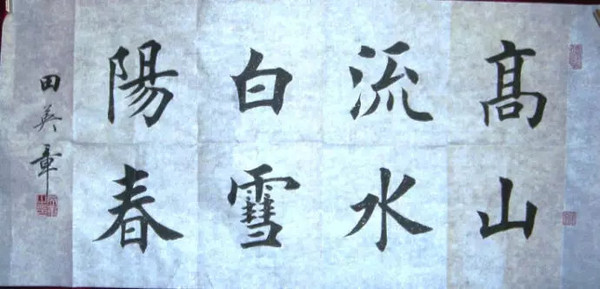 髙山
流水
白雪
陽春
田英章